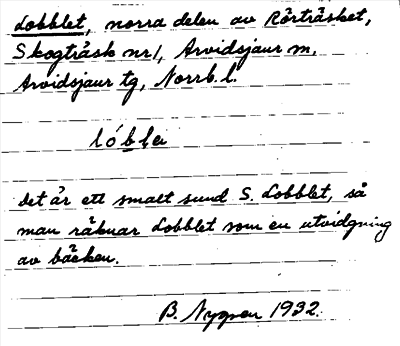 Lobblet, norra delen av Rörträsket,
Skogträsk nr 1, Arvidsjaur sn,
Arvidsjaur tg, Norrb. l.
lób̲le
Det är ett smalt sund S. Lobblet, så
man räknar Lobblet som en utvidgning
av bäcken.
B. Nygren 1932.